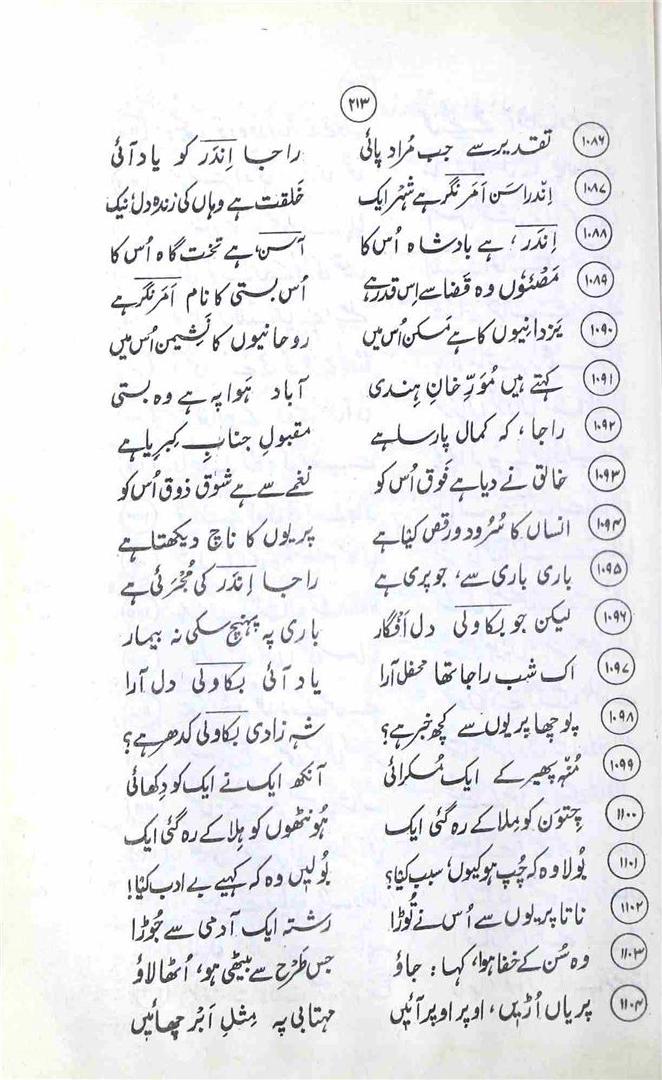 ۲۱۳
۱۰۸۶ تقدیر سے جب مُراد پائی راجا اِندَر کو یاد آئی
۱۰۸۷ اِندراسَن اَمَر نگر ہے شہر ایک خَلقت ہے وہاں کی زندہ دل، نیک
۱۰۸۸ اِندَر، ہے بادشاہ اُس کا آسن، ہے تخت گاہ اُس کا
۱۰۸۹ مَصئوٗں وہ قَضا سے اِس قدر ہے اُس بستی کا نام اَمَر نگر ہے
۱۰۹۰ یَزدانیوں کا ہے مَسکن اُس میں روحانیوں کا نَشیمن اُس میں
۱۰۹۱ کہتے ہیں مُوَرِّخانِ ہِندی آباد ہَوا پہ ہے وہ بستی
۱۰۹۲ راجا، کہ کمال پارسا ہے مقبولِ جنابِ کِبریا ہے
۱۰۹۳ خالق نے دیا ہے فَوق اُس کو نَغمے سے ہے شوق ذوق اُس کو
۱۰۹۴ انساں کا سُرود و رقص کیا ہے پریوں کا ناچ دیکھتا ہے
۱۰۹۵ باری باری سے، جو پری ہے راجا اِندَر کی مُجرئی ہے
۱۰۹۶ لیکن جو بکاولی دل اَفگار باری پہ پہنچ سکی نہ بیمار
۱۰۹۷ اک شب راجا تھا محفل آرا یاد آئی بکاولی دل آرا
۱۰۹۸ پوچھا پریوں سے کچھ خبر ہے؟ شہ زادی بکاولی کدھر ہے؟
۱۰۹۹ مُنہ پھیر کے ایک مُسکرائی آنکھ ایک نے ایک کو دِکھائی
۱۱۰۰ چِتون کو مِلا کے رہ گئی ایک ہونٹھوں کو ہِلا کے رہ گئی ایک
۱۱۰۱ بولا وہ کہ چُپ ہو کیوں، سبب کیا؟ بولیں وہ کہ کہیے بے ادب کیا!
۱۱۰۲ ناتا پریوں سے اُس نے توڑا رشتہ ایک آدمی سے جوڑا
۱۱۰۳ وہ سُن کے خفا ہوا، کہا: جاؤ جس طَرْح سے بیٹھی ہو، اُٹھا لاؤ
۱۱۰۴ پریاں اُڑیں، اوپر اوپر آئیں مہتابی پہ مِثلِ اَبر چھائیں